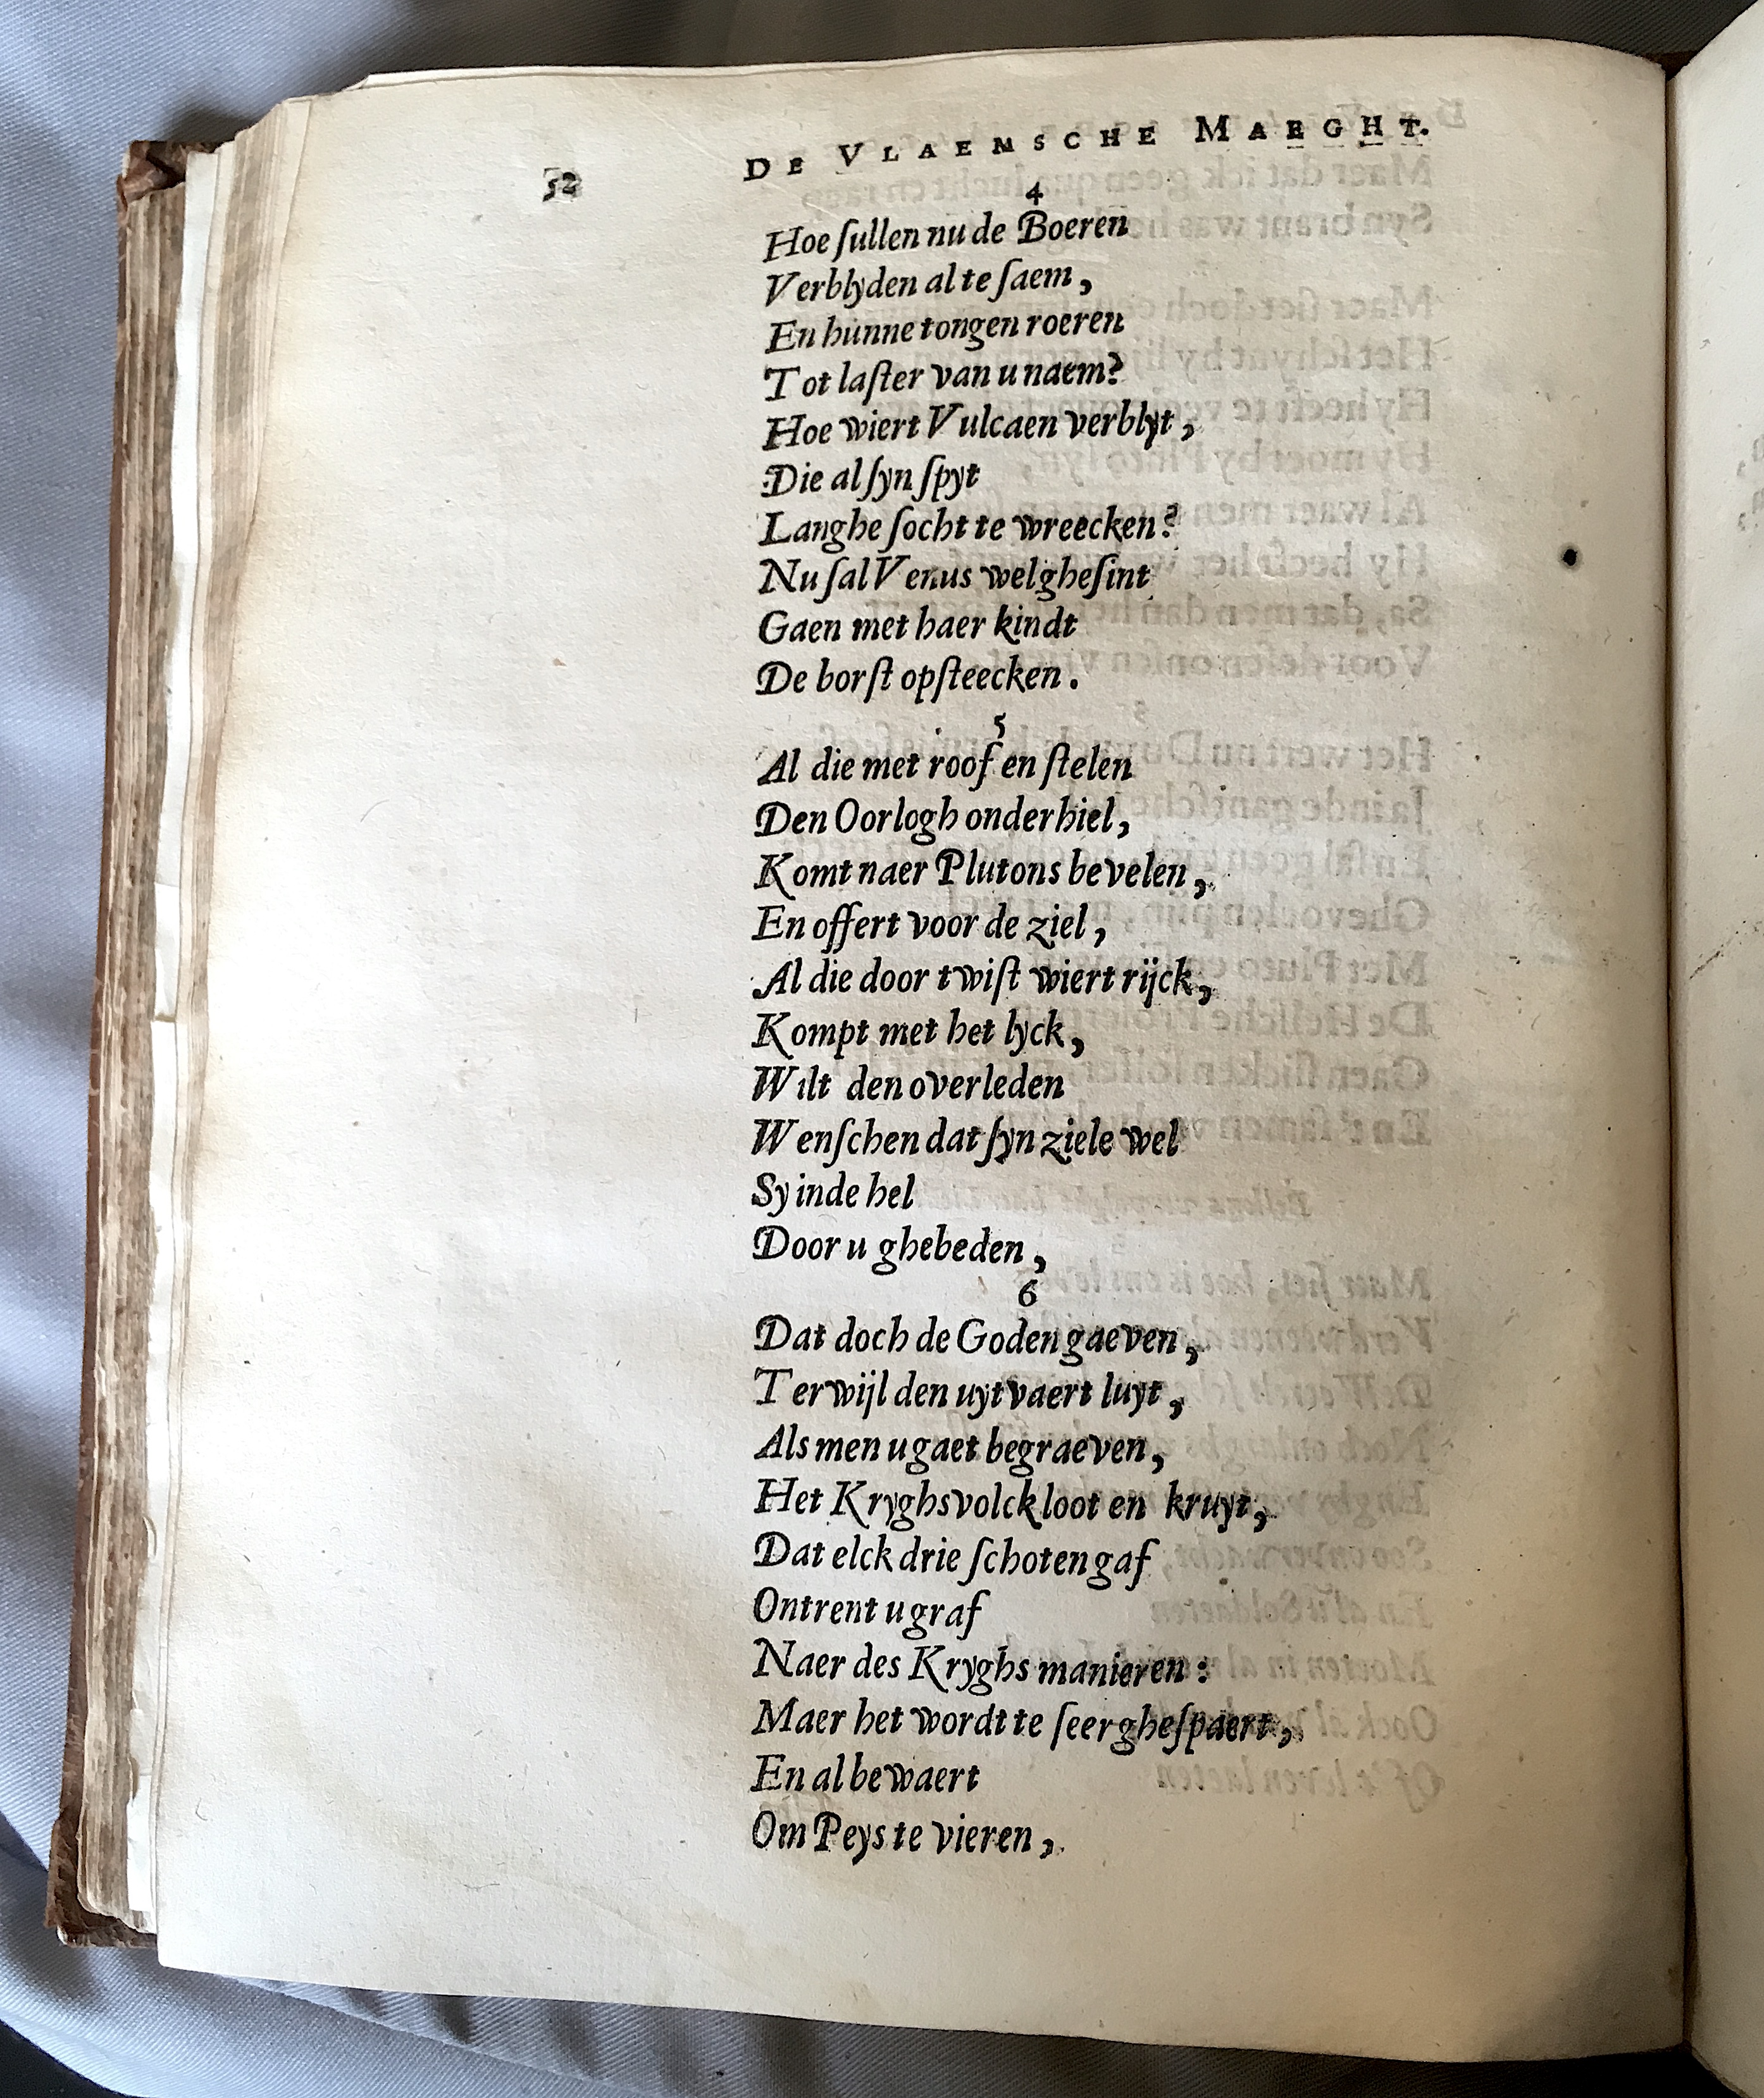 52 DE VLAEMSCHE MAEGHT.
4
Hoe ſullen nu de Boeren
Verblyden al te ſaem,
En hunne tongen roeren
Tot laſter van u naem?
Hoe wiert Vulcaen verblyt,
Die al ſyn ſpyt
Langhe ſocht te wreecken?
Nu ſal Venus welgheſint
Gaen met haer kindt
De borſt opſteecken.
5
Al die met roof en ſtelen
Den Oorlogh onderhiel,
Komt naer Plutons bevelen,
En offert voor de ziel,
Al die door twiſt wiert rijck,
Kompt met het lyck,
Wilt den overleden
Wenſchen dat ſyn ziele wel
Sy inde hel
Door u ghebeden,
6
Dat doch de Goden gaeven,
Terwijl den uytvaert luyt,
Als men u gaet begraeven,
Het Kryghsvolck loot en kruyt,
Dat elck drie ſchoten gaf
Ontrent u graf
Naer des Kryghs manieren:
Maer het wordt te ſeer gheſpaert,
En al bewaert
Om Peys te vieren,